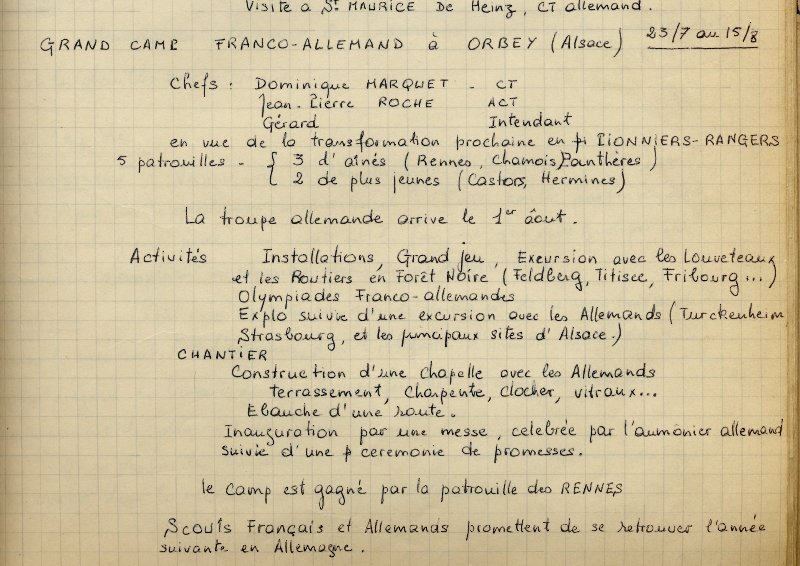 Visite a St MAURICE De Heinz, CT allemand.
GRAND CAMP FRANCO-ALLEMAND à ORBEY (Alsace) 23/7 au 15/8
Chefs : Dominique MARQUET - CT
Jean-Pierre ROCHE ACT
Gérard Intendant
en vue de la transformation prochaine en PIONNIERS-RANGERS
5 patrouilles - { 3 d'aînés (Rennes, Chamois, Panthères)
2 de plus jeunes (Castors, Hermines)
La troupe allemande arrive le 1er âout.
Activités Installations, Grand jeu, Excursion avec les Louveteaux
et les Routiers en Forêt Noire (Feldberg, Titisee, Fribourg...)
Olympiades Franco-allemandes
Explo suivie d'une excursion avec les Allemands (Turckenheim
Strasbourg, et les principaux sites d'Alsace.)
CHANTIER
Construction d'une chapelle avec les Allemands
Terrassement, Charpente, Clocher, vitraux...
Ebauche d'une route.
Inauguration par une messe, celebrée par l'aumonier allemand
suivie d'une p ceremonie de promesses.
le camp est gagné par la patrouille des RENNES
Scouts Français et Allemands promettent de se retrouver l'année
suivante en Allemagne.